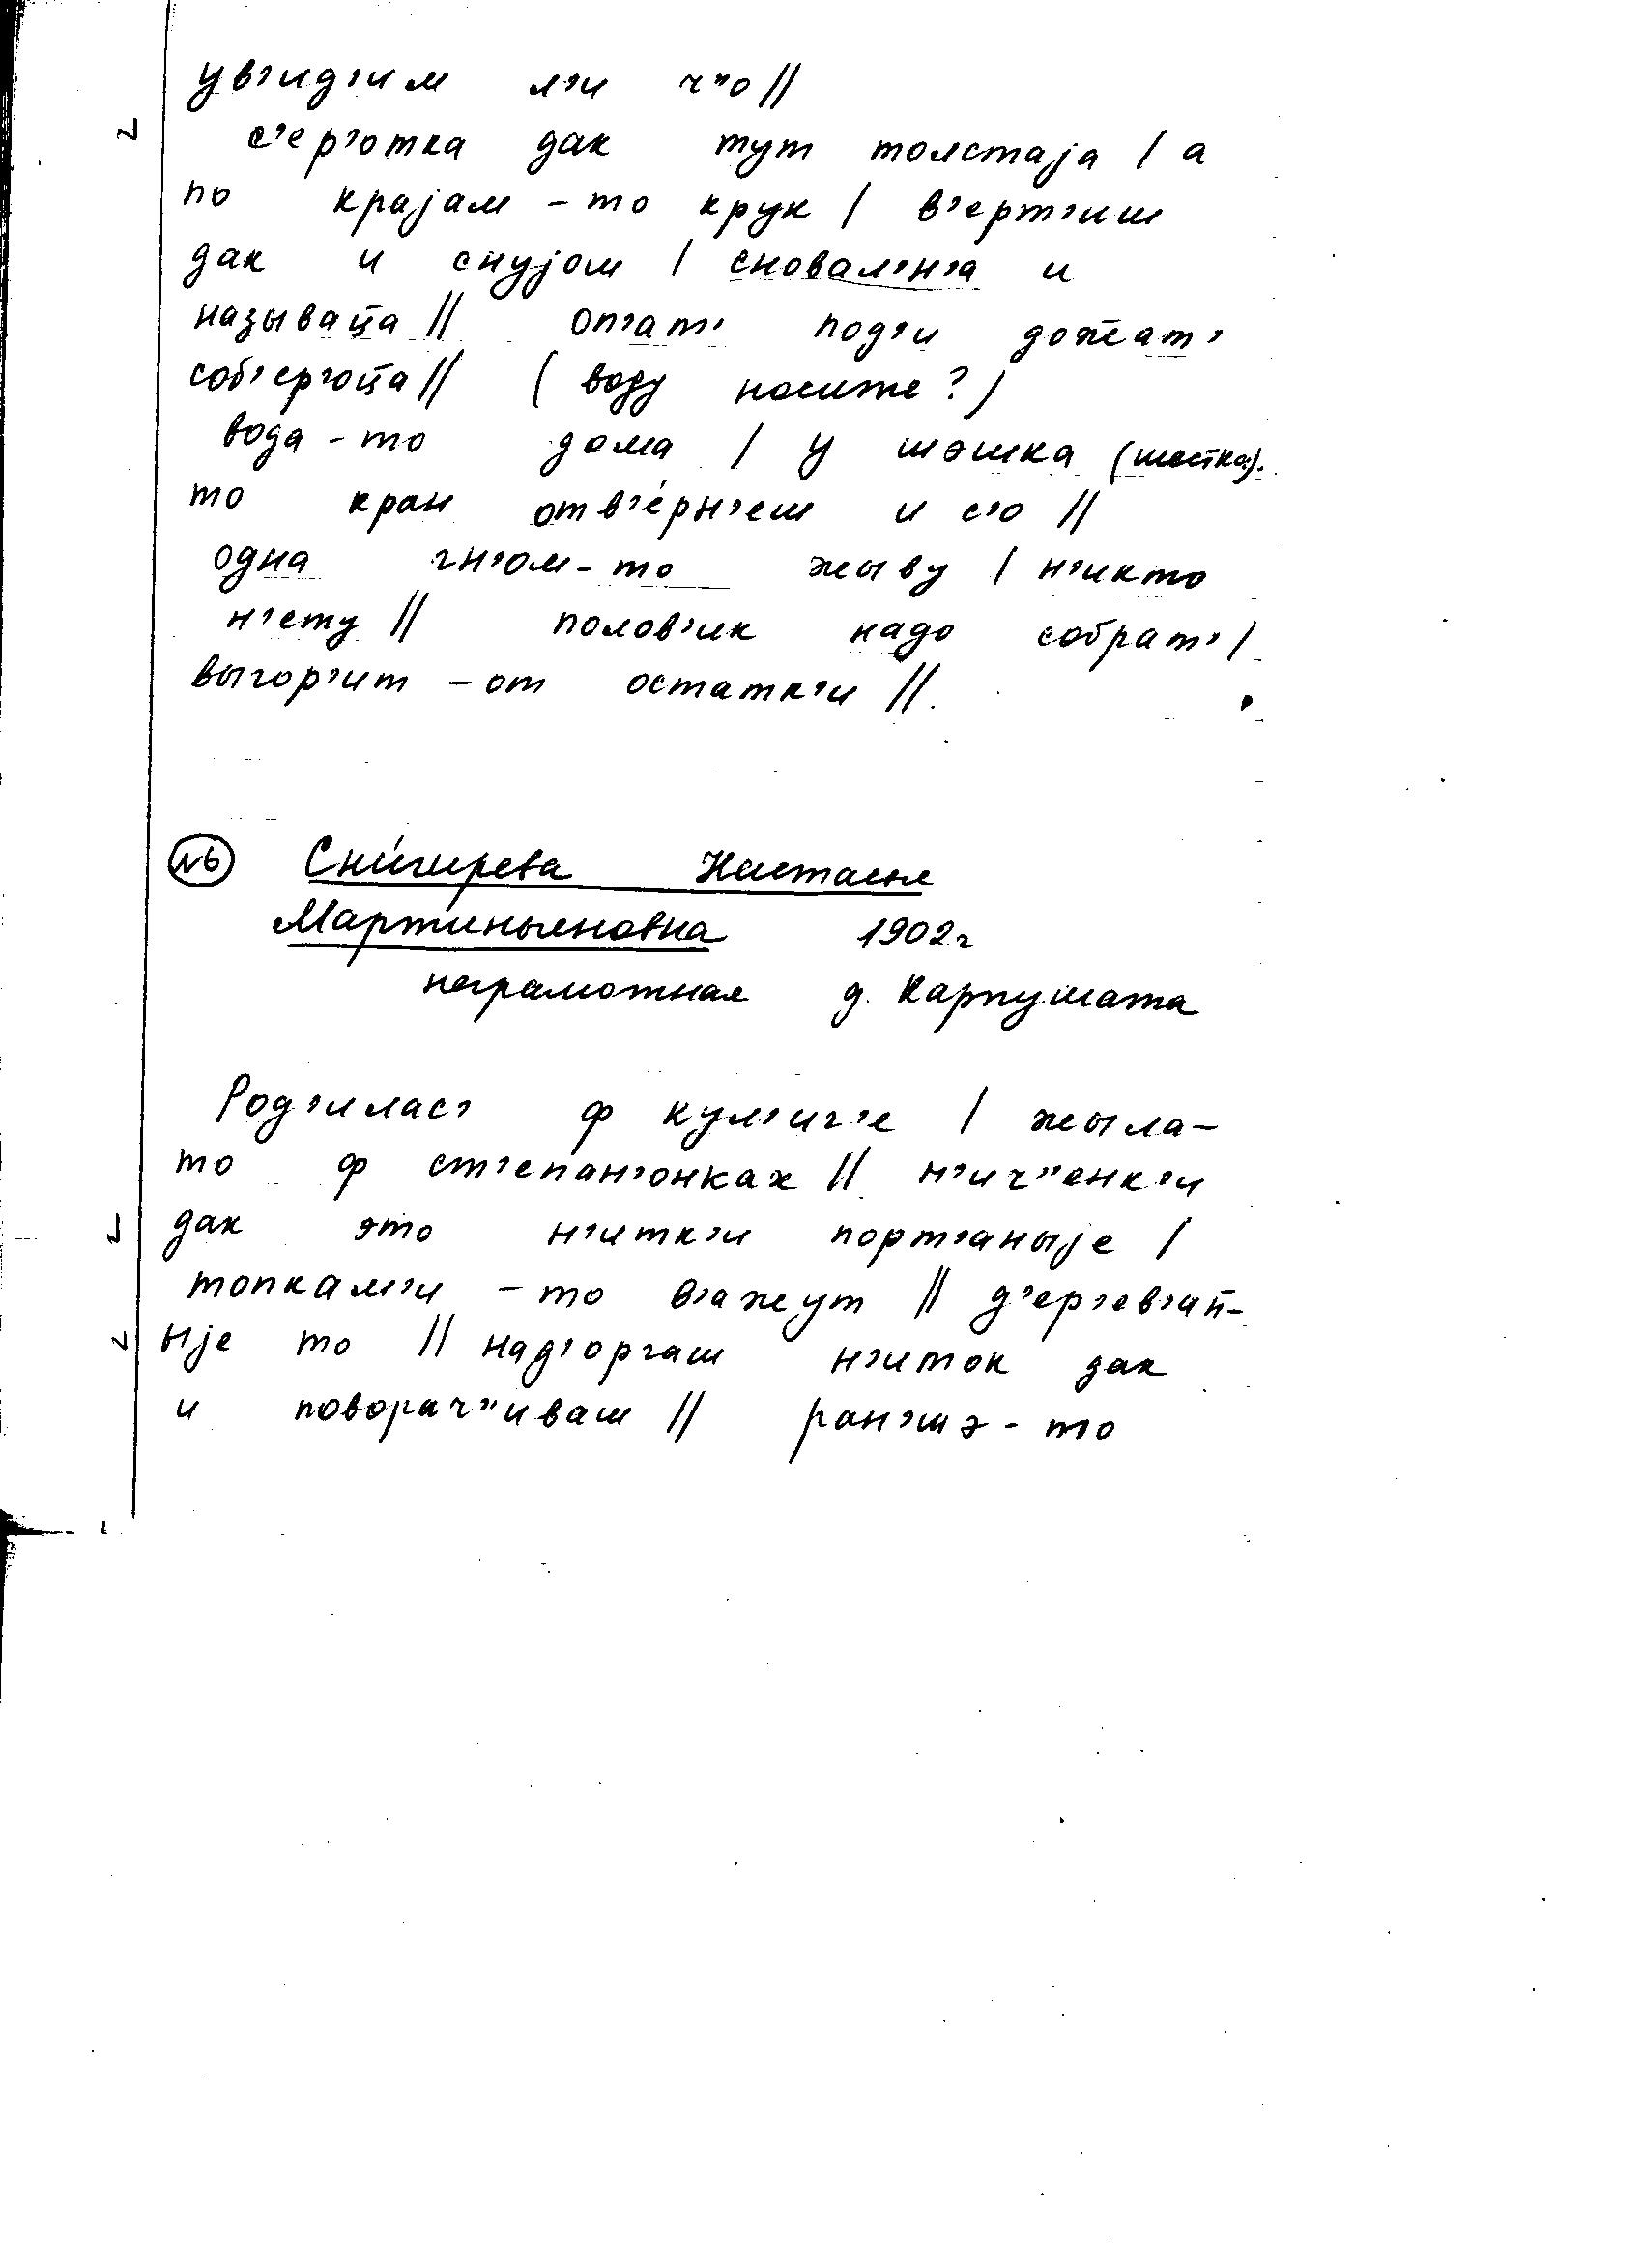 ув'ид'им л'и ч"о //
с'ер'отка дак тут толстаjа / а
по краjам - то крук / в'ерт'иш
дак и снуjош / сновал'н'а и
называц̄а // оп'ат' под'и дож̄ат'
соб'ер'оц̄а // ( воду носите? )
вода - то дома / у шэшка (шестка).
то кран отв'е́рн'еш и с'о //
одна гн'ом - то жыву / н'икто
н'ету // полов'ик надо собрат' /
выгор'ит - от остатк'и //.
№6 Снигирева Настасья
Мартиньяновна 1902г
неграмотная д. Карпушата
Род'илас' ф кул'иг'е / жыла -
то ф ст'епан'онках // н'ич"енк'и
дак это н'итк'и порт'аныjе /
топкам'и - то в'ажут // д'ер'ев'ан̄-
ыjе то // над'орг'аш н'иток дак
и поворач"иваш // ран'шэ - то